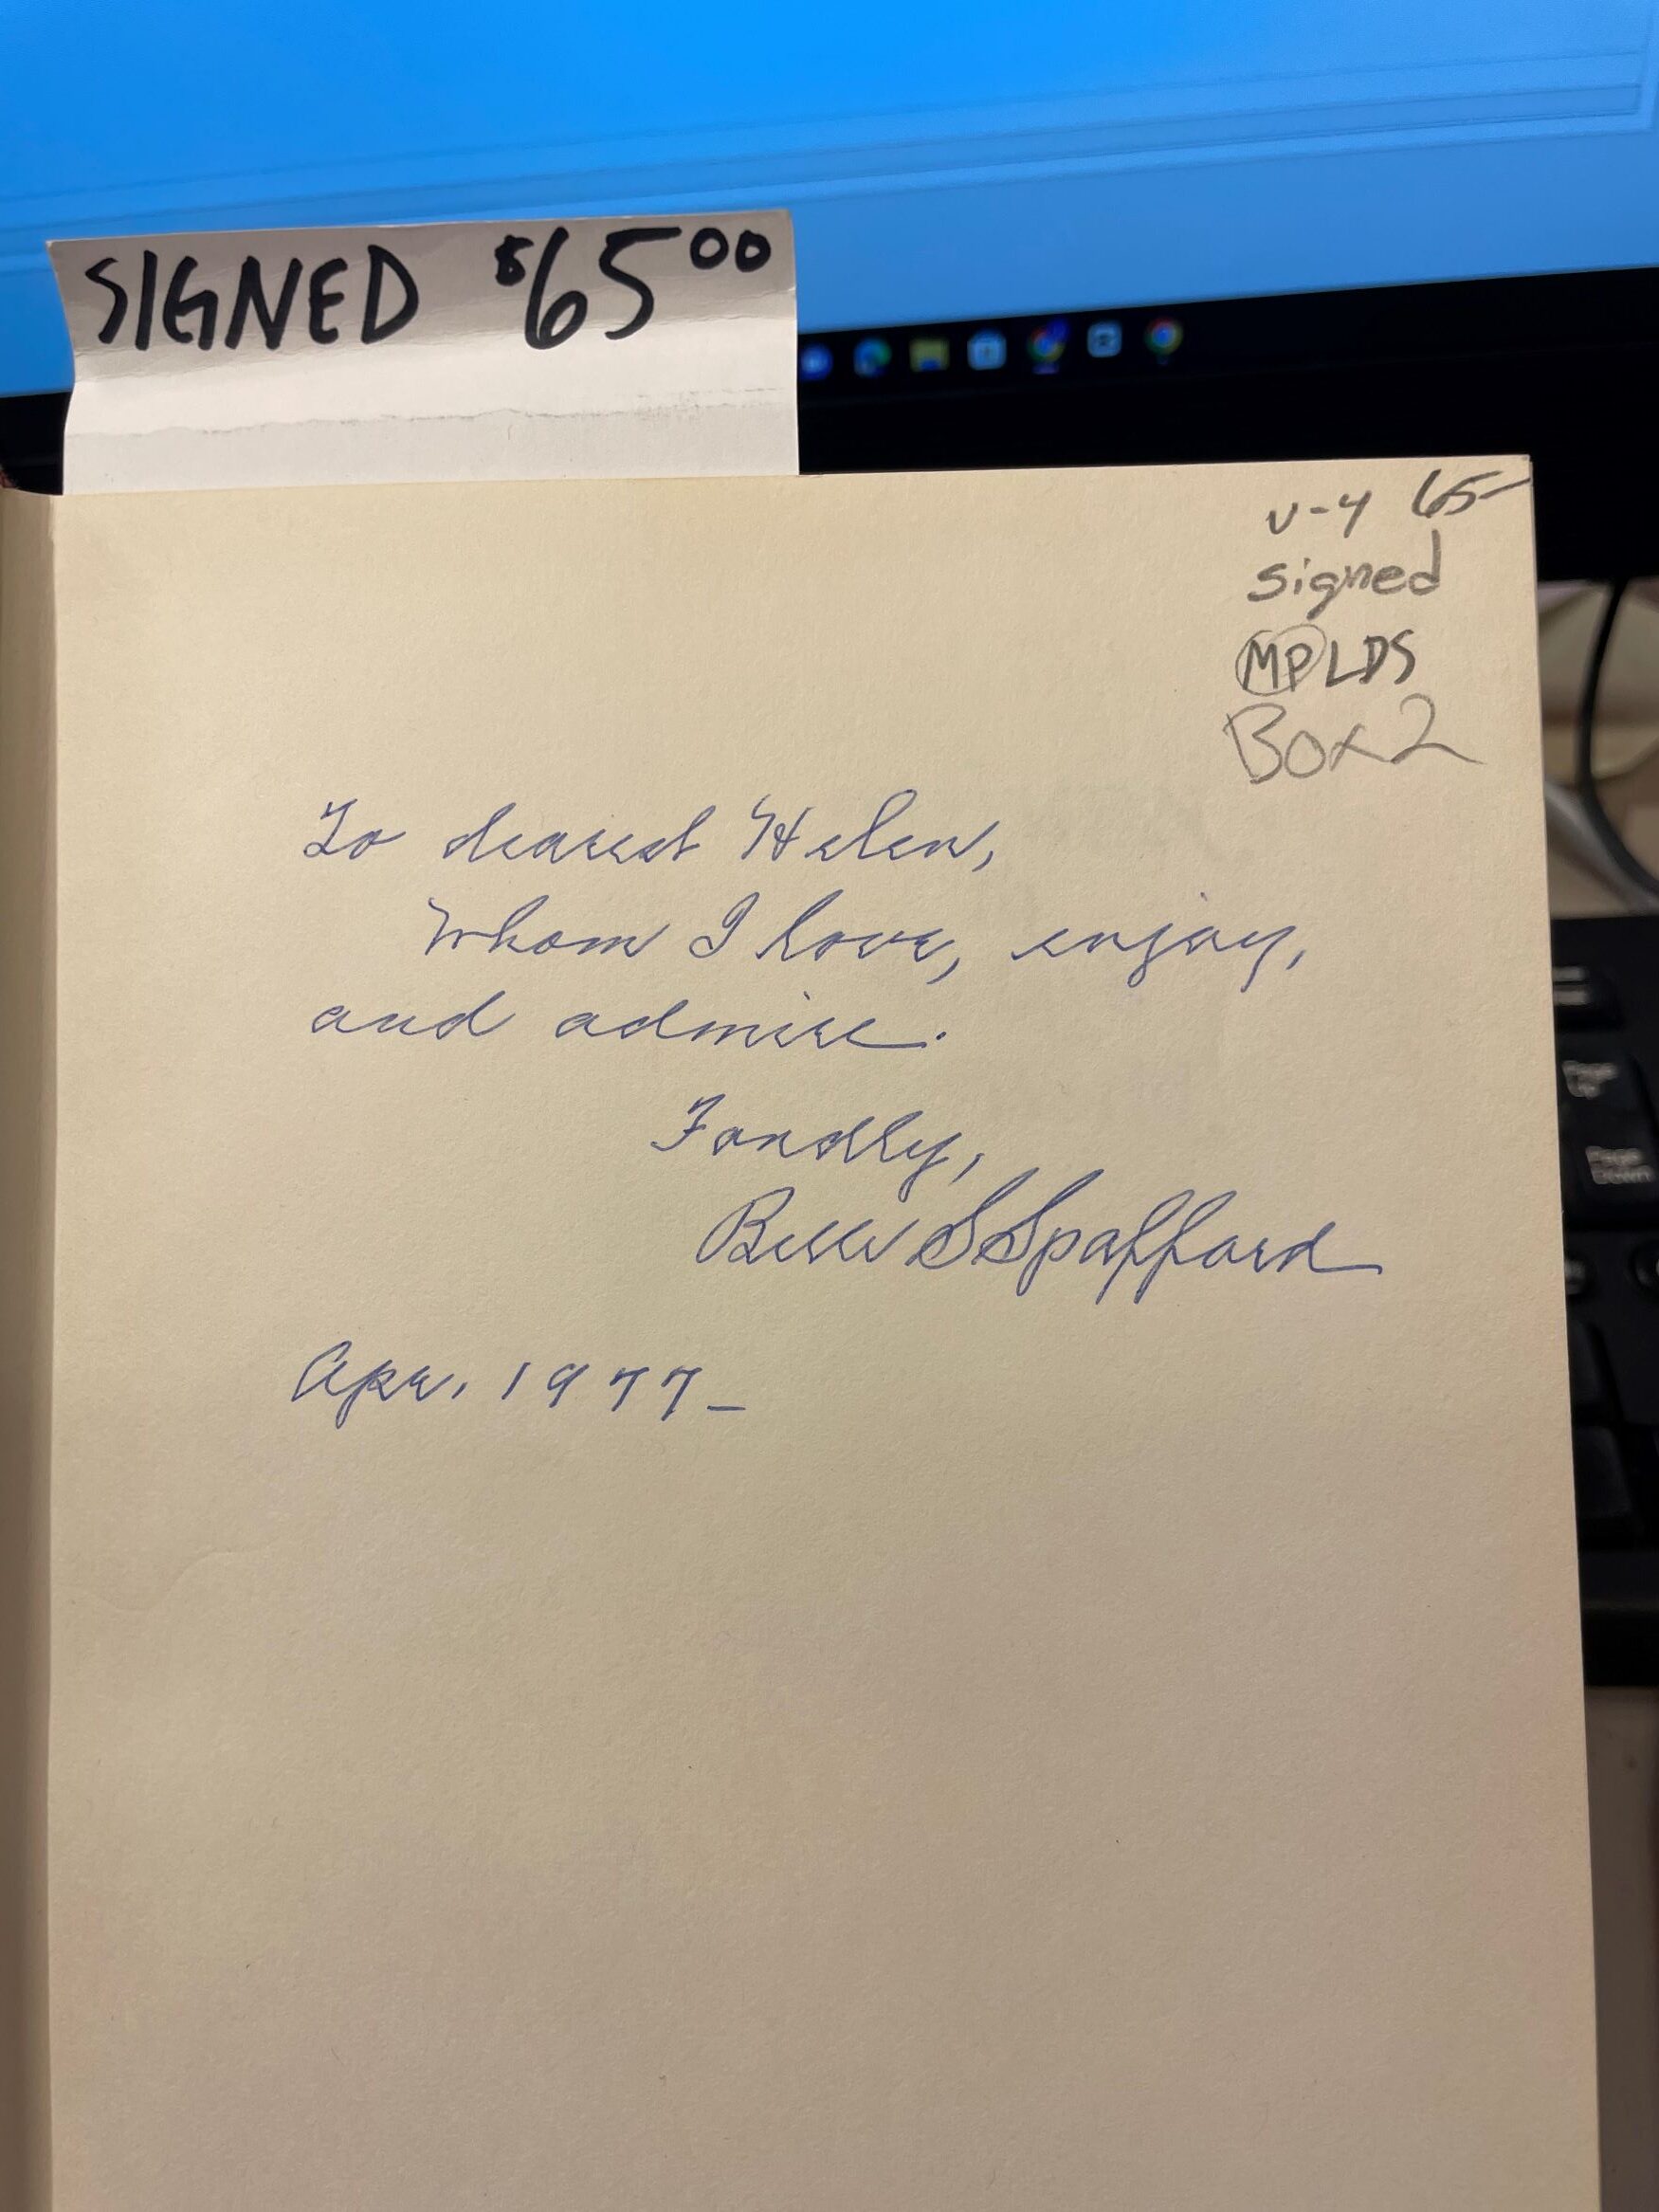 SIGNED $65.00
v-4 65-
signed
MP LDS
Box 2
To dearest Helen,
Whom I love, enjoy,
and admire.
Fondly,
Belle S Spafford
Apr. 1977_
Page Up
Page Down